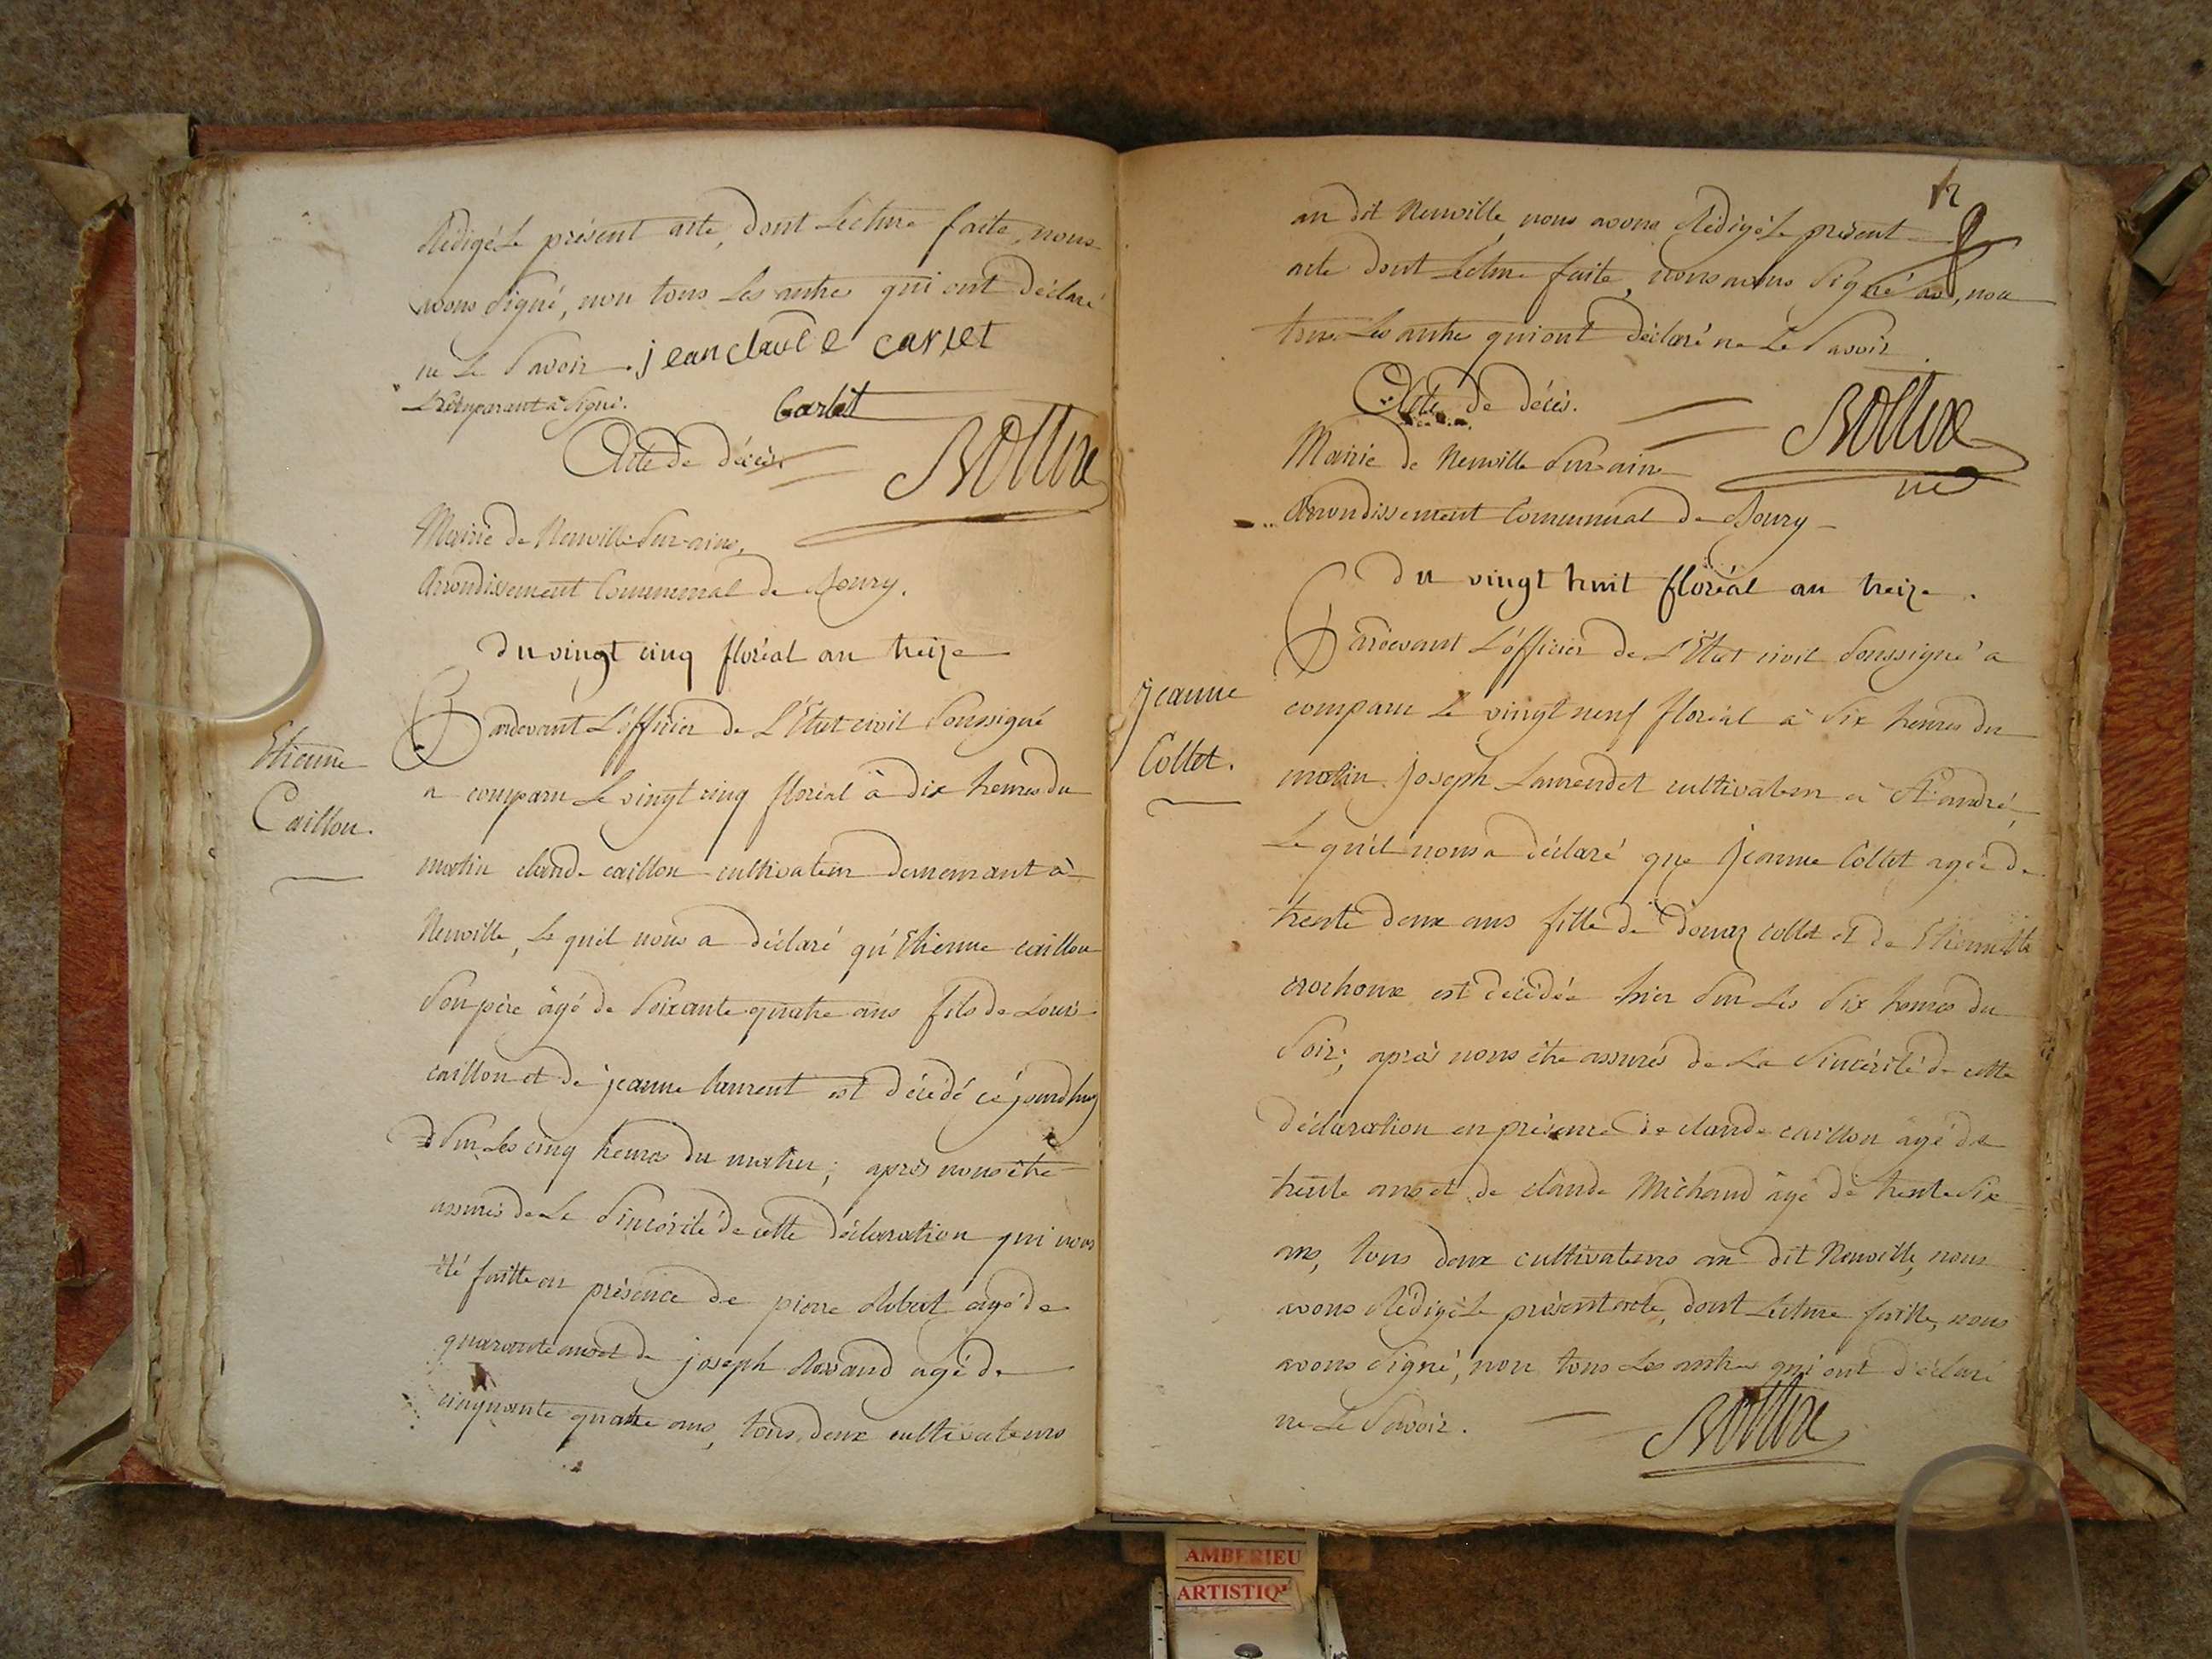 Rédigé le présent acte, dont Lecture faite, nous
avons signé, non tous Les autres qui ont déclaré
ne Le Savoir. jean claude carlet
Le Comparant a signé.
Carlet
Acte de décès.
Mairie de Neuville Sur-ain,
Arrondissement Communal de Bourg.
du vingt cinq floréal an treize
Etienne
Caillon.
Pardevant L'officier de L'Etat civil Soussigné
a comparu Le vingt cinq floréal à dix heures du
matin claude caillon cultivateur demeurant à
Neuville, Le quel nous a déclaré qu'Etienne caillon
Son père âgé de Soixante quatre ans fils de Louis
caillon et de jeanne Laurent est décédé cejourdhuy
Sur Les cinq heures du matin; après nous être
assurés de La Sincérité de cette déclaration qui nous
été faitte en présence de pierre Robert agé de
quarante ans et de joseph agé de
cinquante quatre ans, tous deux cultivateurs
12
au dit Neuville, nous avons Rédigé Le présent
acte dont Lecture faite, nous avons Signé, non
tous Les autres qui ont déclaré ne Le Savoir.
Acte de décès.
Mairie de Neuville Sur-ain
Arrondissement Communal de Bourg
du vingt huit floréal an treize.
jeanne
Collet.
Pardevant L'officier de L'Etat civil Soussigné a
comparu Le vingt neuf floréal à Six heures du
matin joseph cultivateur à St. andré,
Le quel nous a déclaré que jeanne Collet agée de
trente deux ans fille de collet et de
est décédée hier Sur Les Six heures du
Soir; après nous être assurés de La Sincérité de cette
déclaration en présence de claude caillon âgé de
trente ans et de claude Michaud âgé de trente Six
ans, tous deux cultivateurs au dit Neuville, nous
avons Rédigé Le présent acte, dont Lecture faitte, nous
avons Signé, non tous Les autres qui ont déclaré
ne Le Savoir.
AMBERIEU
ARTISTIQ